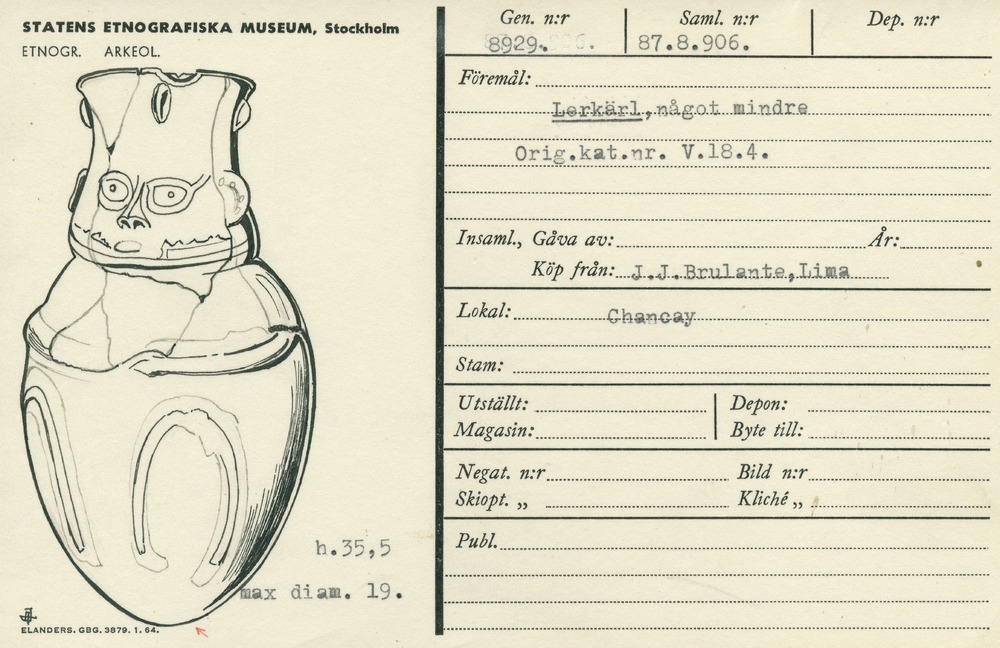 STATENS ETNOGRAFISKA MUSEUM, Stockholm
ETNOGR. ARKEOL.
h.35,5
max diam. 19.
ELANDERS. GBG. 3879. 1. 64.
Gen. n:r Saml. n:r Dep. n:r
8929. 87.8.906.
Föremål:
Lerkärl, något mindre
Orig.kat.nr. V.18.4.
Insaml., Gåva av: År:
Köp från: J.J.Brulante,Lima
Lokal: Chancay
Stam:
Utställt: Depon:
Magasin: Byte till:
Negat. n:r Bild n:r
Skiopt. „ Kliché „
Publ.